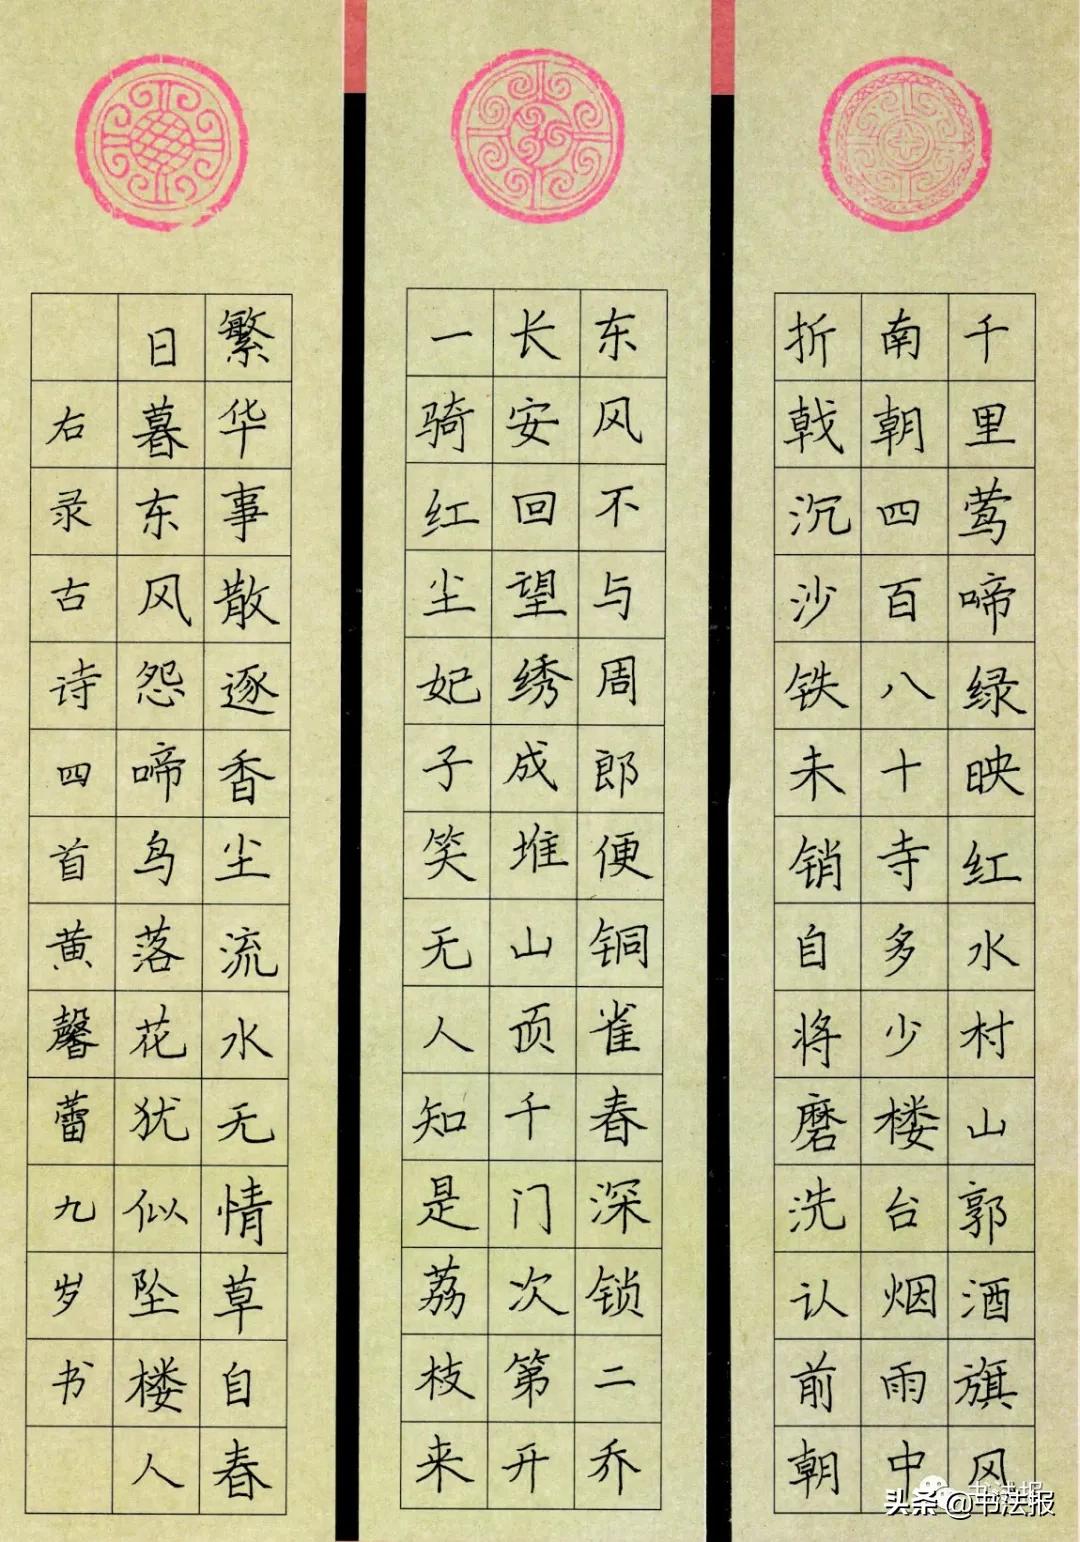 千里莺啼绿映红水村山郭酒旗风
南朝四百八十寺多少楼台烟雨中
折戟沉沙铁未销自将磨洗认前朝
东风不与周郎便铜雀春深锁二乔
长安回望绣成堆山顶千门次第开
一骑红尘妃子笑无人知是荔枝来
繁华事散逐香尘流水无情草自春
日暮东风怨啼鸟落花犹似坠楼人
右录古诗四首黄馨蕾九岁书
书法报
头条@书法报